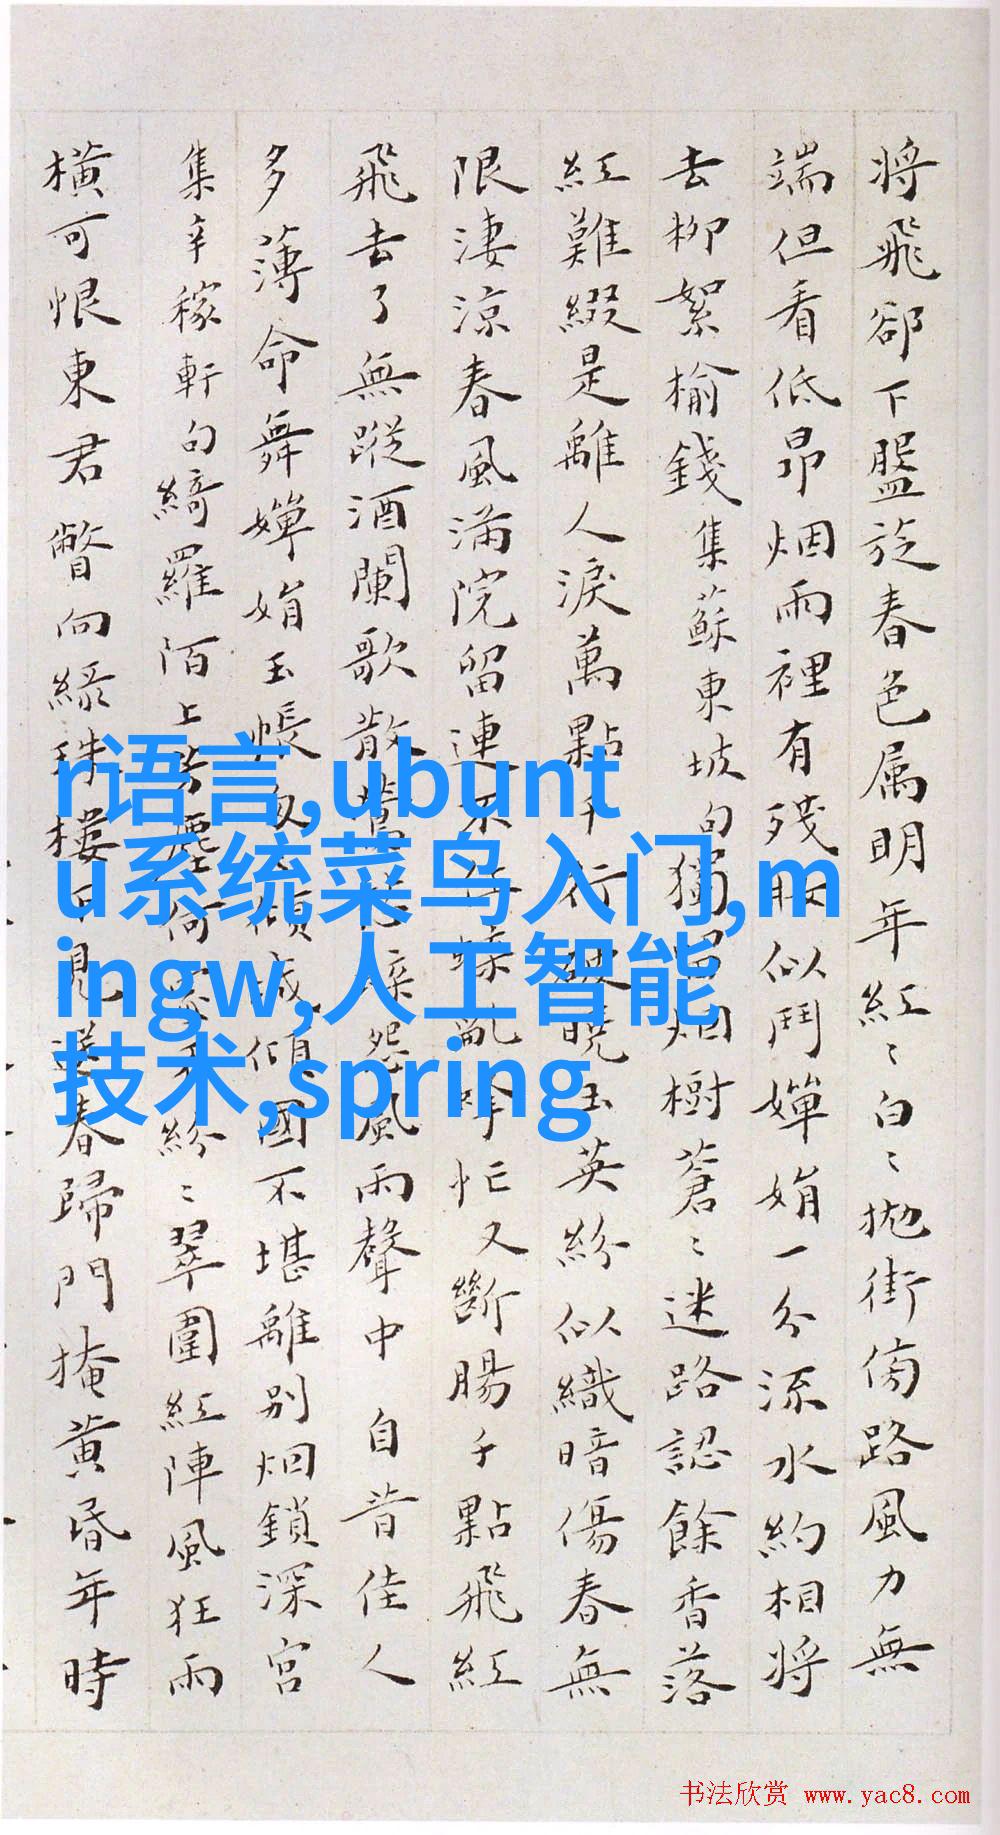 将飛卻下盤旋春色属明年紅〻白〻拋街傍路風力無
端但看低昂烟雨裡有殘妝似鬥嬋娟一分流水約相將
去柳絮榆錢集蘇東坡句獨烟樹蒼〻迷路認餘香落
紅難綴是離人淚萬點千行曉玉英紛似織暗傷春無
限淒涼春風滿院留連不亂呼忙又斷腸千點飛紅
飛去了無蹤酒闌歌散怨風雨聲中自昔佳人
多薄命舞嬋娟玉帳傾城傾國不堪離別烟鎖深宮
集辛稼軒句綺羅陌上芳塵何紛〻翠圍紅陣風狂雨
橫可恨東君瞥向緑珠樓不見送春歸門掩黃昏年時
r语言,ubunt
u系统菜鸟入门,m
ingw,人工智能
技术,spring
书法欣赏 www.yac8.com